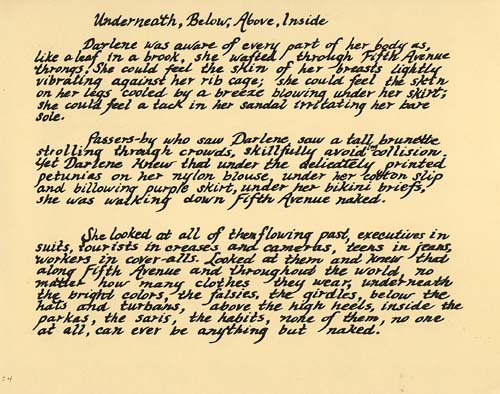 Underneath, Below, Above, Inside
Darlene was aware of every part of her body as,
like a leaf in a brook, she wafted through Fifth Avenue
throngs. She could feel the skin of her breasts lightly
vibrating against her rib cage; she could feel the skin
on her legs cooled by a breeze blowing under her skirt;
she could feel a tack in her sandal irritating her bare
sole.
Passers-by who saw Darlene, saw a tall brunette
strolling through crowds, skillfully avoiding collision.
Yet Darlene knew that under the delicately printed
petunias on her nylon blouse, under her cotton slip
and billowing purple skirt, under her bikini briefs,
she was walking down Fifth Avenue naked.
She looked at all of them flowing past, executives in
suits, tourists in creases and cameras, teens in jeans,
workers in cover-alls. Looked at them and knew that
along Fifth Avenue and throughout the world, no
matter how many clothes they wear, underneath
the bright colors, the falsies, the girdles, below the
hats and turbans, above the high heels, inside the
parkas, the saris, the habits, none of them, no one
at all, can ever be anything but naked.